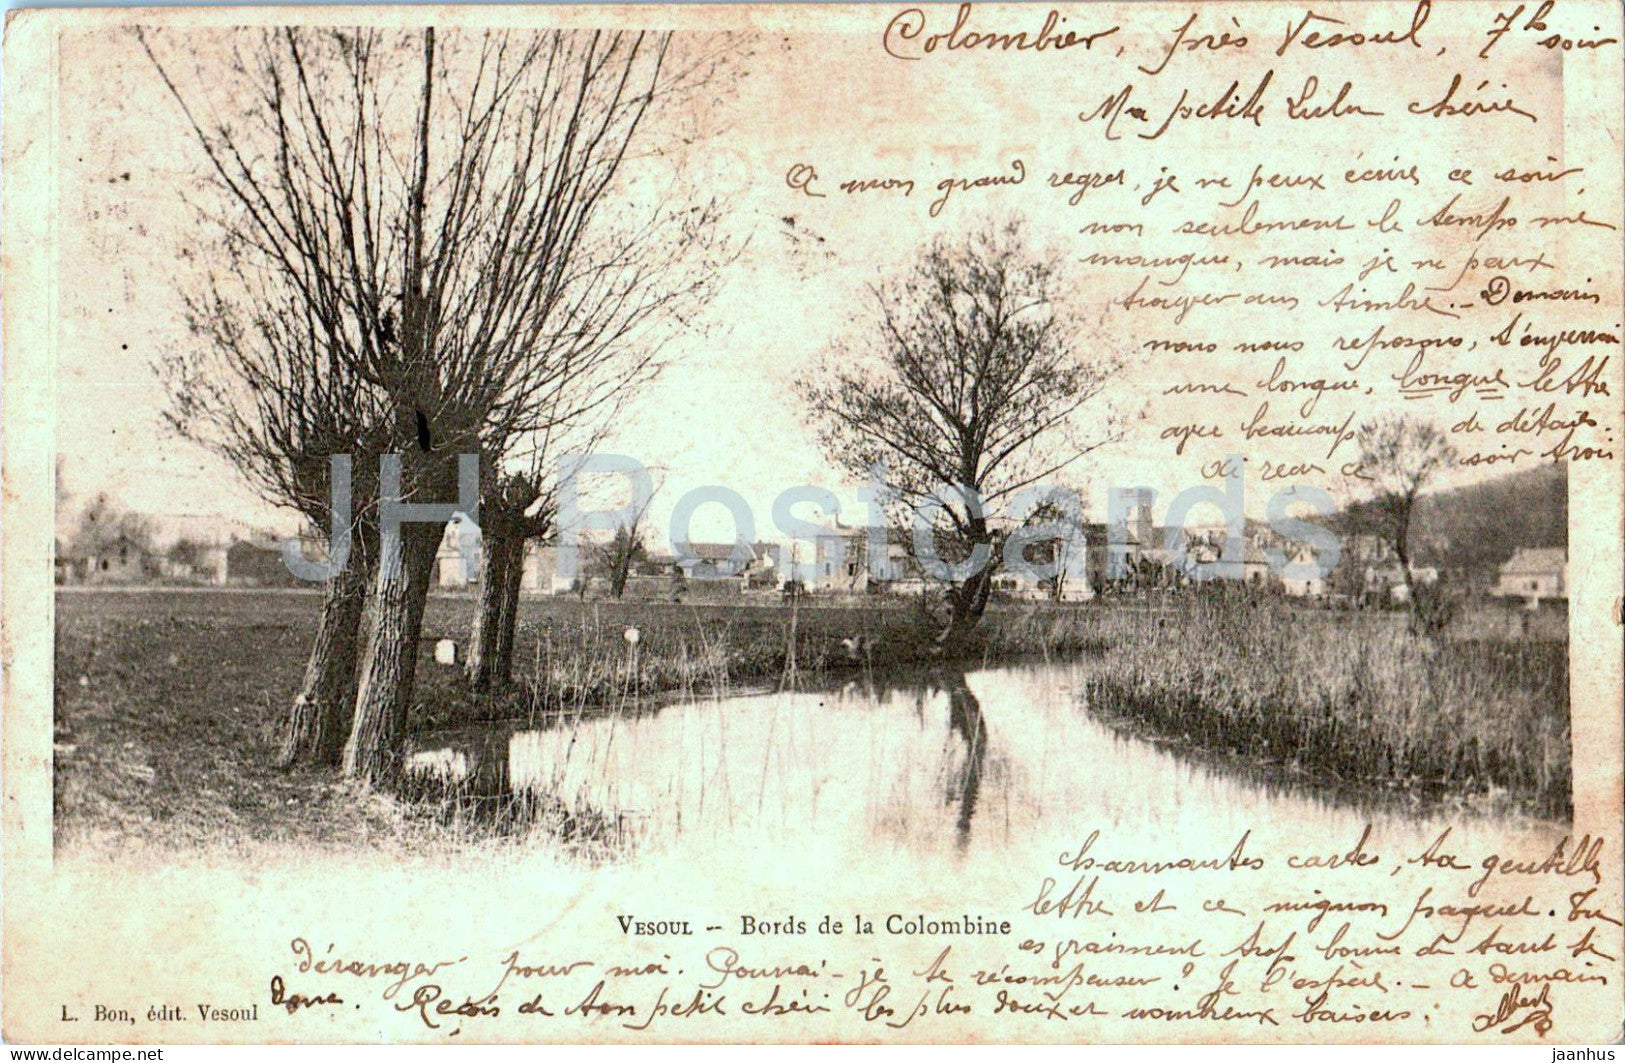 Colombier, près Vesoul, 7h soir
Ma petite Lulu chérie
A mon grand regret, je ne peux écrire ce soir,
non seulement le temps me
manque, mais je ne peux
trouver aus timbre. - Demain
nous nous reposons, t'enverrai
une longue, longue lettre
avec beaucoup de détails.
Ai reçu ce soir trois
charmantes cartes, ta gentille
lettre et ce mignon paquet. Tu
es vraiment trop bonne de tant te
déranger pour moi. Pourrai-je te récompenser? Je l'espère. - A demain
donc. Reçois de ton petit chéri les plus doux et nombreux baisers.
Albert
VESOUL -- Bords de la Colombine
L. Bon, édit. Vesoul
JH Postcards
jaanhus @ delcampe.net